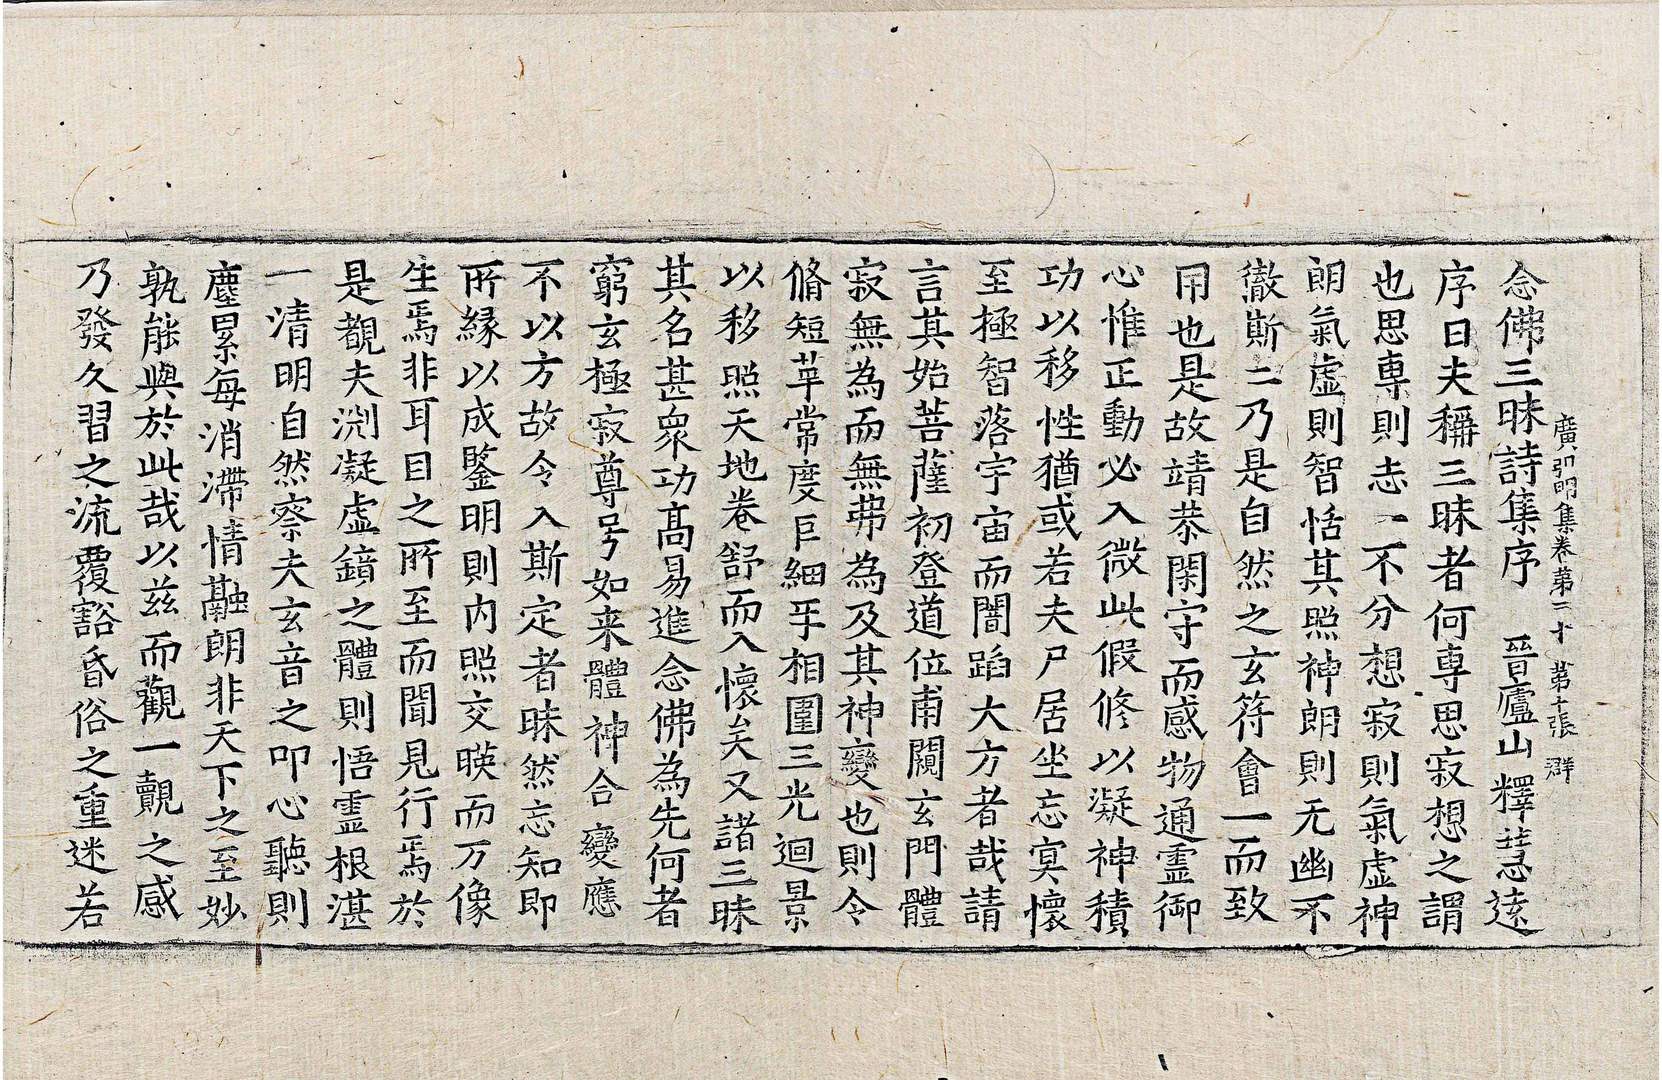 廣弘明集卷第三十 第十張 群
念佛三昧詩集序 晉廬山釋慧遠
序曰夫稱三昧者何專思寂想之謂
也思專則志一不分想寂則氣虛神
朗氣虛則智恬其照神朗則无幽不
徹斯二乃是自然之玄符會一而致
用也是故靖恭閑守而感物通靈御
心惟正動必入微此假修以凝神積
功以移性猶或若夫尸居坐忘冥懷
至極智落宇宙而闇蹈大方者哉請
言其始菩薩初登道位甫闚玄門體
寂無為而無弗為及其神變也則令
脩短革常度巨細互相圍三光迴景
以移照天地卷舒而入懷矣又諸三昧
其名甚衆功高易進念佛為先何者
窮玄極寂尊号如来體神合變應
不以方故令入斯定者昧然忘知即
所緣以成鑒明則内照交暎而万像
生焉非耳目之所至而聞見行焉於
是覩夫渕凝虛鏡之體則悟霊根湛
一清明自然察夫玄音之叩心聽則
塵累每消滯情融朗非天下之至妙
孰能與於此哉以兹而觀一覿之感
乃發久習之流覆豁昏俗之重迷若